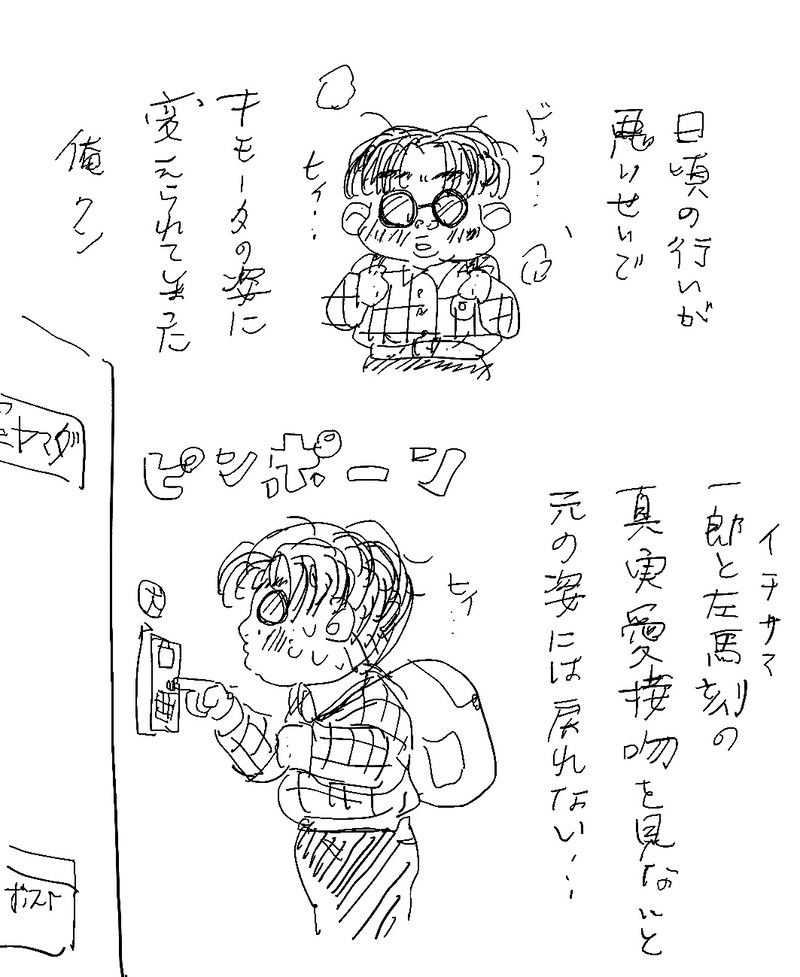 日頃の行いが
悪いせいで
ドッフ…
ヒィ…
キモータの姿に
変えられてしまった
俺クン
ピンポーン
イチサマ
一郎と左馬刻の
真実愛接吻を見ないと
元の姿には戻れない…
ヒィ…
ヤマダ
ポスト